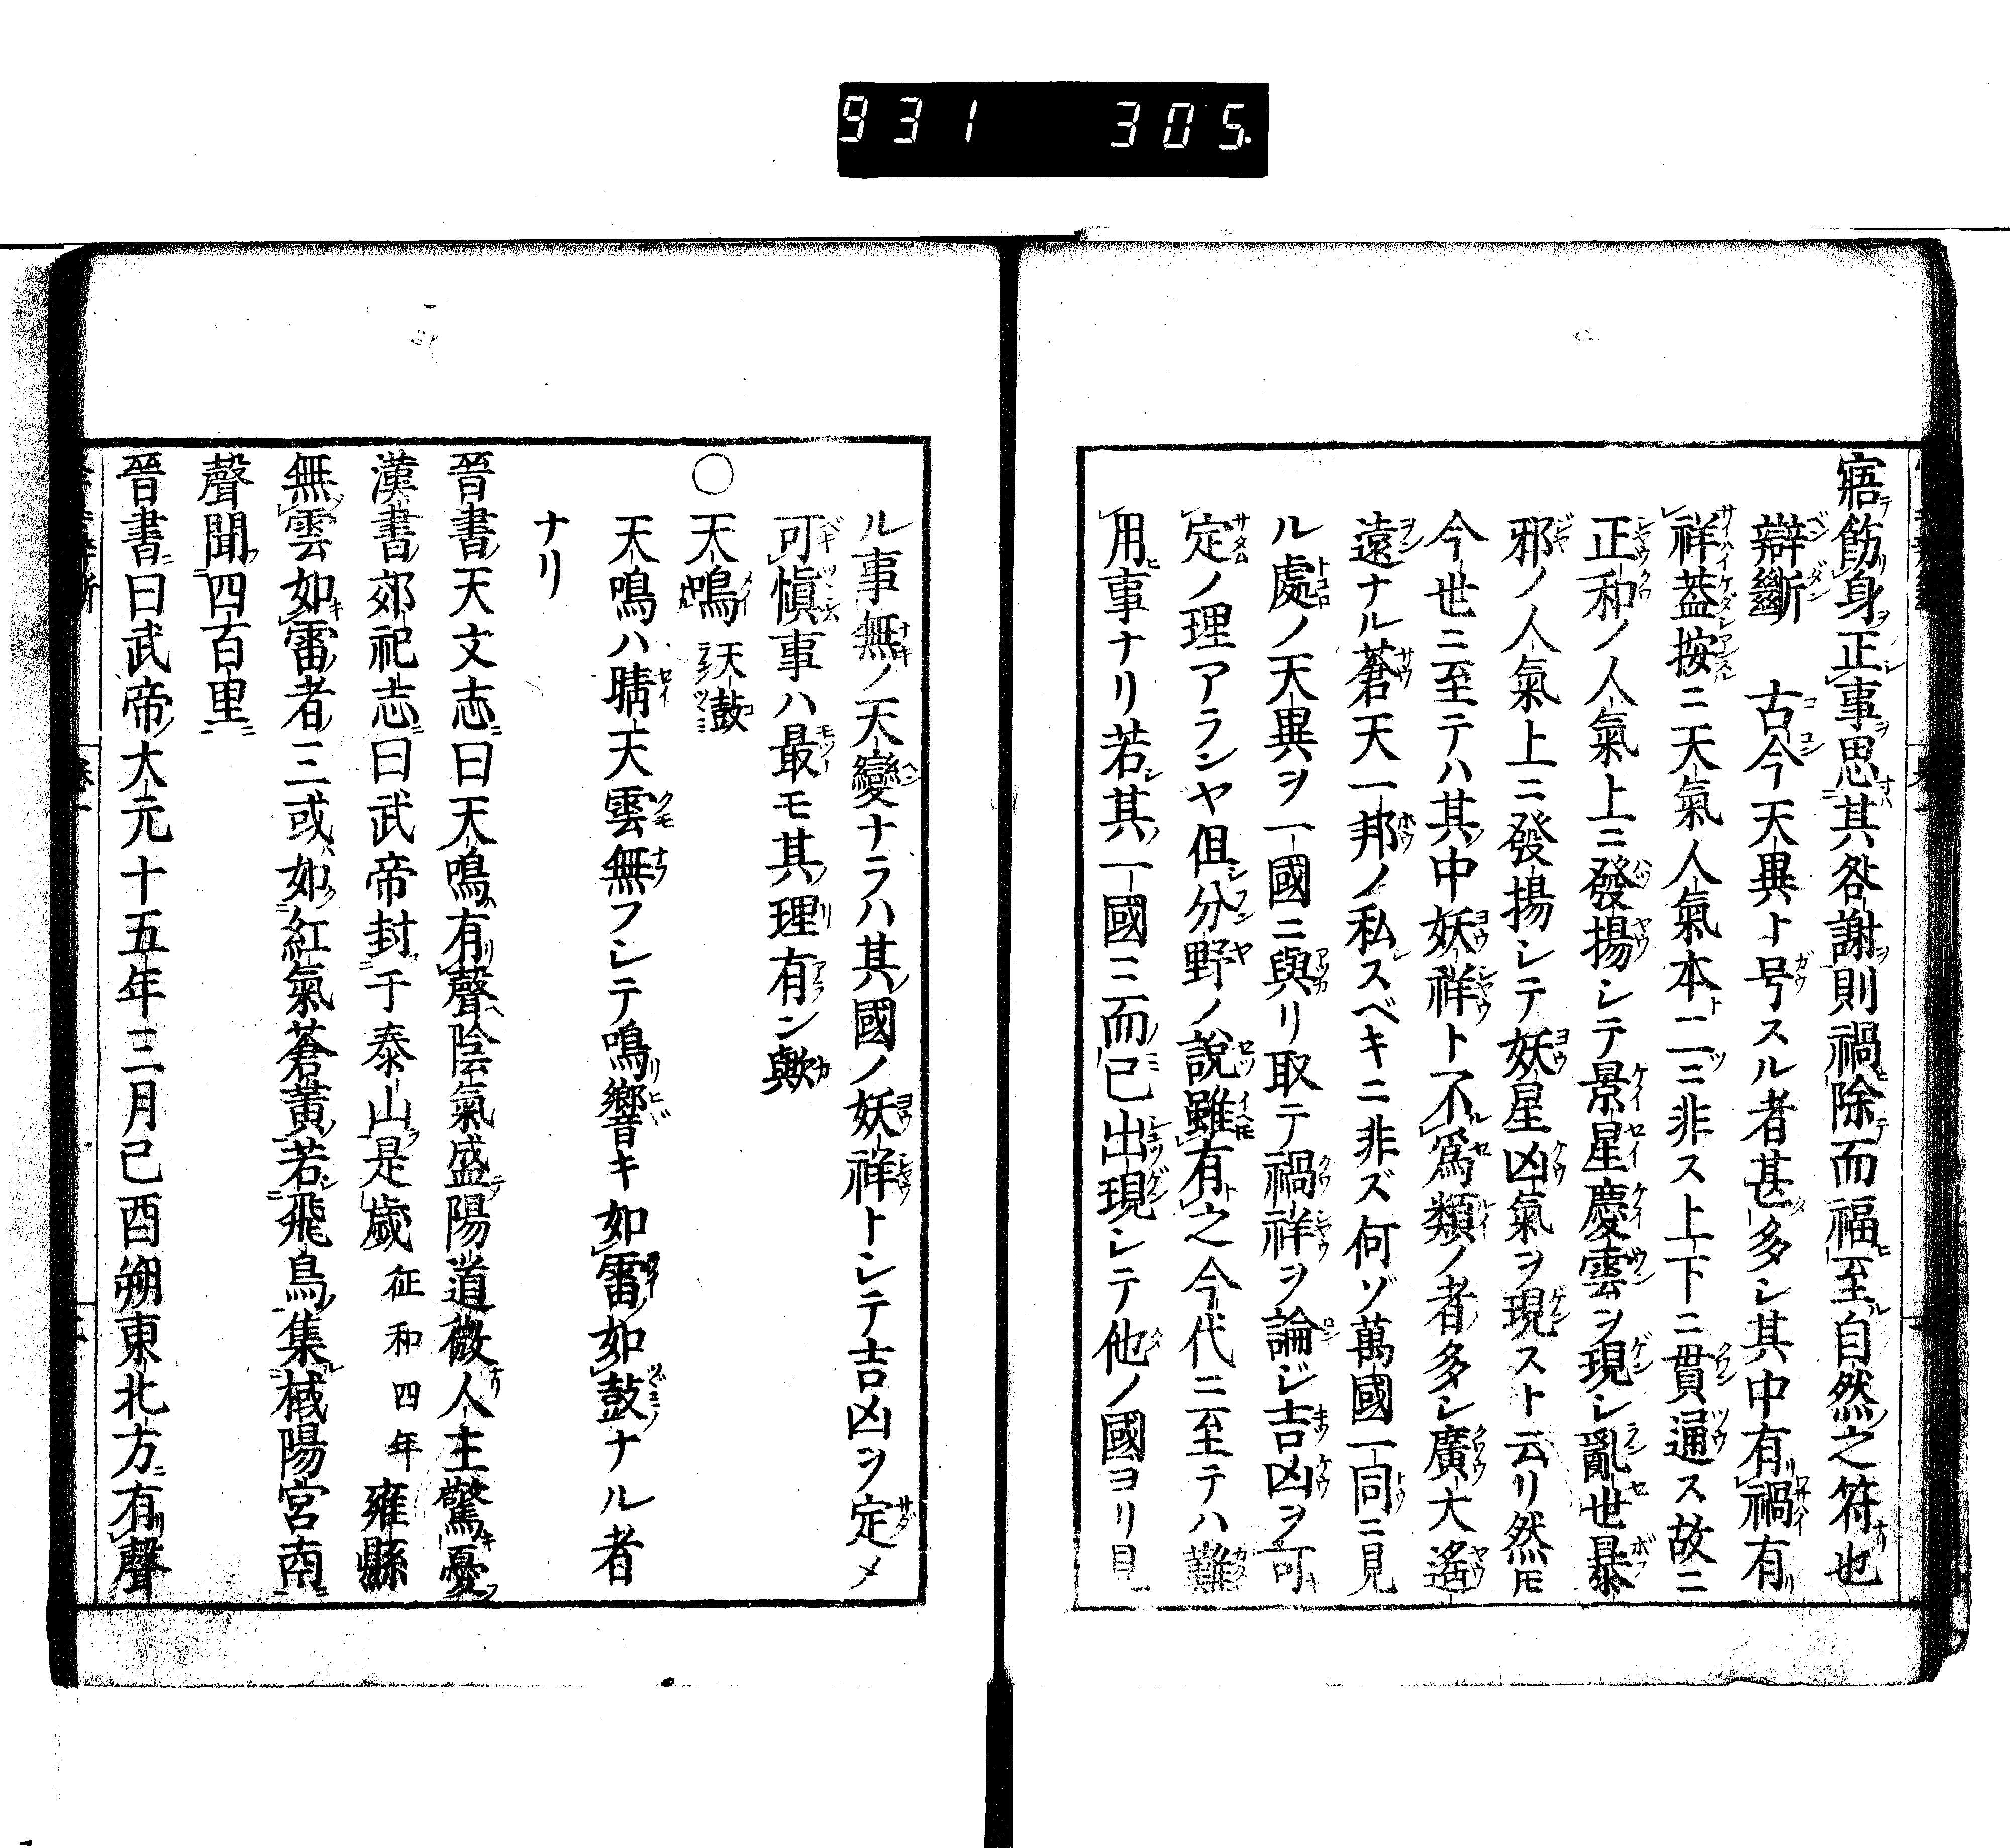 931 305.
寤飭身正事思其咎謝則禍除而福至自然之符也
辯斷 古今天異ト号スル者甚多シ其中有禍有
祥葢按ニ天氣人氣本二ニ非ス上下ニ貫通ス故ニ
正和ノ人氣上ニ發揚シテ景星慶雲ヲ現シ亂世暴
邪ノ人氣上ニ發揚シテ妖星凶氣ヲ現スト云リ然ㇳモ
今世ニ至テハ其中妖祥ト不爲類ノ者多シ廣大遙
遠ナル蒼天一邦ノ私スベキニ非ズ何ゾ萬國一同ニ見
ル處ノ天異ヲ一國ニ與リ取テ禍祥ヲ論ジ吉凶ヲ可
定ノ理アランヤ但分野ノ說雖有之今代ニ至テハ難
用事ナリ若其一國ニ而已出現シテ他ノ國ヨリ見
ル事無ノ天變ナラハ其國ノ妖祥トシテ吉凶ヲ定メ
可愼事ハ最モ其理有ン歟
○天鳴 天鼓
天鳴ハ晴天雲無フシテ鳴響キ如雷如鼓ナル者
ナリ
晉書天文志曰天鳴有聲陰氣盛陽道微人主驚憂
漢書郊祀志曰武帝封于泰山是歲 征和四年 雍縣
無雲如雷者三或如紅氣蒼黃若飛鳥集棫陽宮南
聲聞四百里
晉書曰武帝大元十五年三月己酉朔東北方有聲